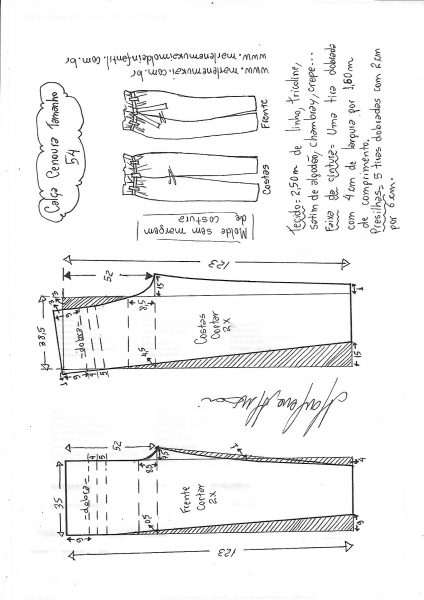 Calça Cenoura Tamanho
54
www.marlenemukai.com.br
www.marlenemukaimoldeinfantil.com.br
Frente
Costas
Molde sem margem
de costura
Tecido= 2,50m de linho, tricoline,
satim de algodão, chambray, crepe...
Faixa da cintura= Uma tira dobrada
com 4 cm de largura por 1,60m
de comprimento.
Presilhas= 5 tiras dobradas com 2cm
por 6cm.
123
52
38,5
3
6
=dobra=
15
8,5
4,5
Costas
Cortar
2x
15
1
35
52
=dobra=
6
8,5
0,5
Frente
Cortar
2x
1
4
6
123